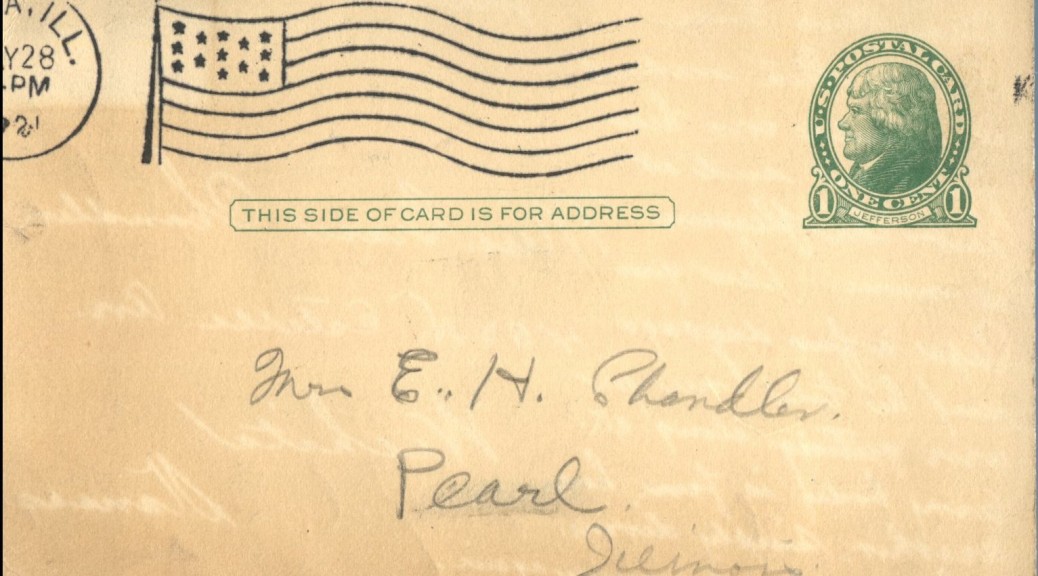 A, ILL.
Y28
-PM
U.S. POSTAL CARD
ONE CENT
1 JEFFERSON 1
THIS SIDE OF CARD IS FOR ADDRESS
Mrs E. H. Chandler.
Pearl.
Illinois